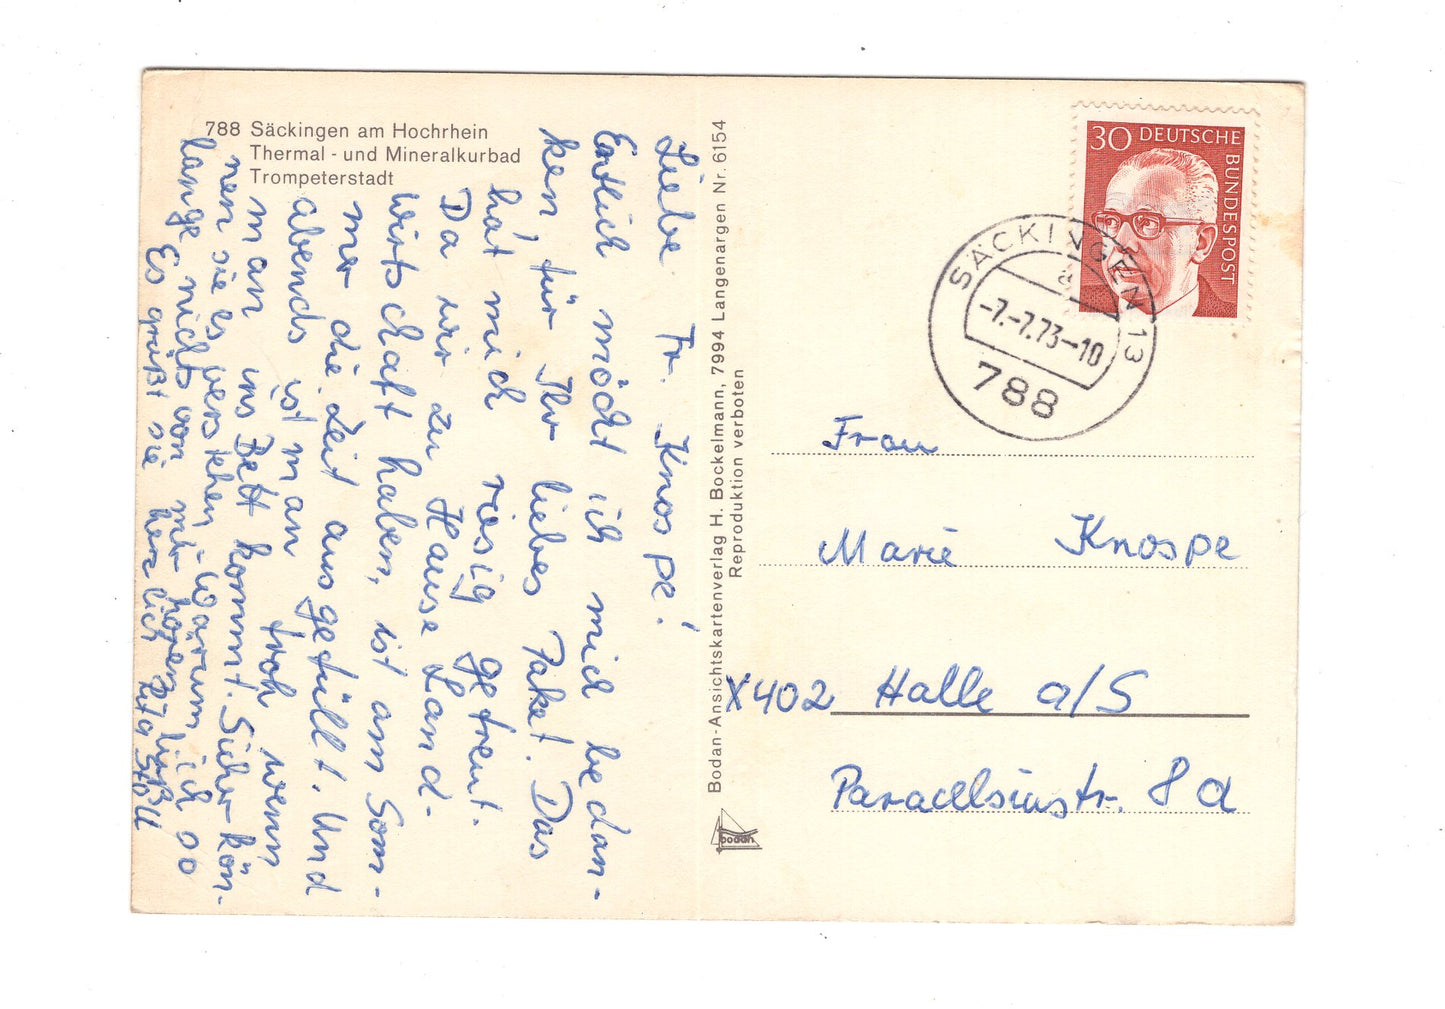 788 Säckingen am Hochrhein
Thermal - und Mineralkurbad
Trompeterstadt
Liebe Fr. Knospe!
Entlich möcht ich mich bedan-
ken, für Ihr liebes Paket. Das
hat mich riesig gefreut.
Da wir zu Hause Land-
wirtschaft haben, ist am Som-
mer die Zeit ausgefüllt. Und
abends ist man froh wenn
man ins Bett kommt. Sicher kön-
nen sie es verstehen warum ich so
lange nichts von mir hören ließ
Es grüßt sie herzlich Rita
Bodan-Ansichtskartenverlag H. Bockelmann, 7994 Langenargen Nr. 6154
Reproduktion verboten
bodan
30 DEUTSCHE
BUNDESPOST
SÄCKINGEN 13
a
-7.-7.73-10
788
Frau
Marie Knospe
X402 Halle a/S
Paracelsiustr. 8 a